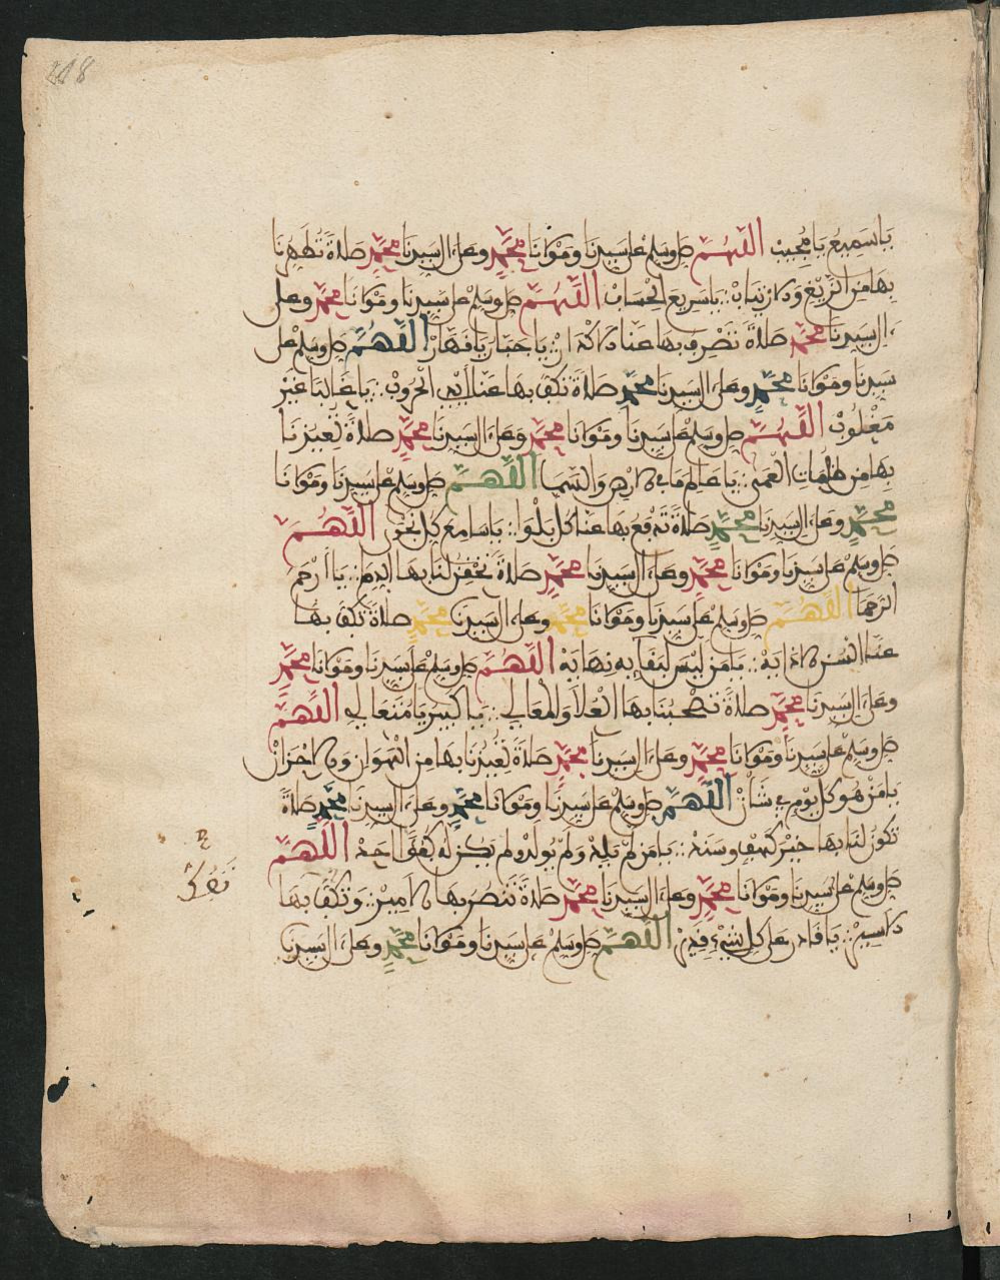 118
يا سميع يا مجيب اللهم صل وسلم على سيدنا ومولانا محمد وعلى ال سيدنا محمد صلاة تطهرنا
بها من الزيغ و يا سريع الحساب اللهم صل وسلم على سيدنا ومولانا محمد وعلى
ءال سيدنا محمد صلاة تصرف بها عنا الاكدار يا جبار يا قهار اللهم صل وسلم على
سيدنا ومولانا محمد وعلى ءال سيدنا محمد صلاة تكف بها عنا الحروب يا غالبا غير
مغلوب اللهم صل وسلم على سيدنا ومولانا محمد وعلى ءال سيدنا محمد صلاة تعيذنا
بها من ظلمات العمى يا عالم ما في الارض والسما اللهم صل وسلم على سيدنا ومولانا
محمد وعلى ءال سيدنا محمد صلاة تدفع بها عنا كل بلوا يا سامع كل نجوى اللهم
صل وسلم على سيدنا ومولانا محمد وعلى ءال سيدنا محمد صلاة لنا بها يا ارحم
الرحما اللهم صل وسلم على سيدنا ومولانا محمد وعلى ءال سيدنا محمد صلاة تكف بها
عنا السن الاذاية يا من ليس لبقايه نهاية اللهم صل وسلم على سيدنا ومولانا محمد
وعلى ءال سيدنا محمد صلاة تصحبنا بها العلا والمعالي يا كبير يا متعالي اللهم
صل وسلم على سيدنا ومولانا محمد وعلى ءال سيدنا محمد صلاة تعيذنا بها من الهوان والاحزان
يا من هو كل يوم في شان اللهم صل وسلم على سيدنا ومولانا محمد وعلى ءال سيدنا محمد صلاة
تكون لنا بها خير كهف وسند يا من لم يلد ولم يولد ولم يكن له كفؤا احد اللهم
صل وسلم على سيدنا ومولانا محمد وعلى ءال سيدنا محمد صلاة تنصر بها وتكف بها
يا قادر على كل شيء قدير اللهم صل وسلم على سيدنا ومولانا محمد وعلى ءال سيدنا